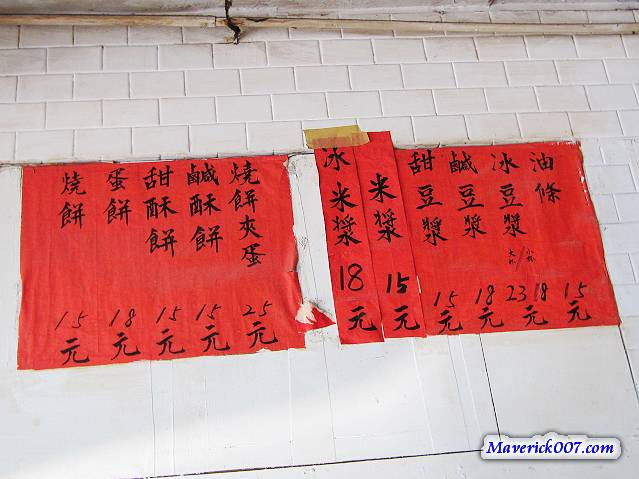 油條 15元
冰豆漿 大杯/小杯 23 18元
鹹豆漿 18元
甜豆漿 15元
米漿 15元
冰米漿 18元
燒餅夾蛋 25元
鹹酥餅 15元
甜酥餅 15元
蛋餅 18元
燒餅 15元
Maverick007.com